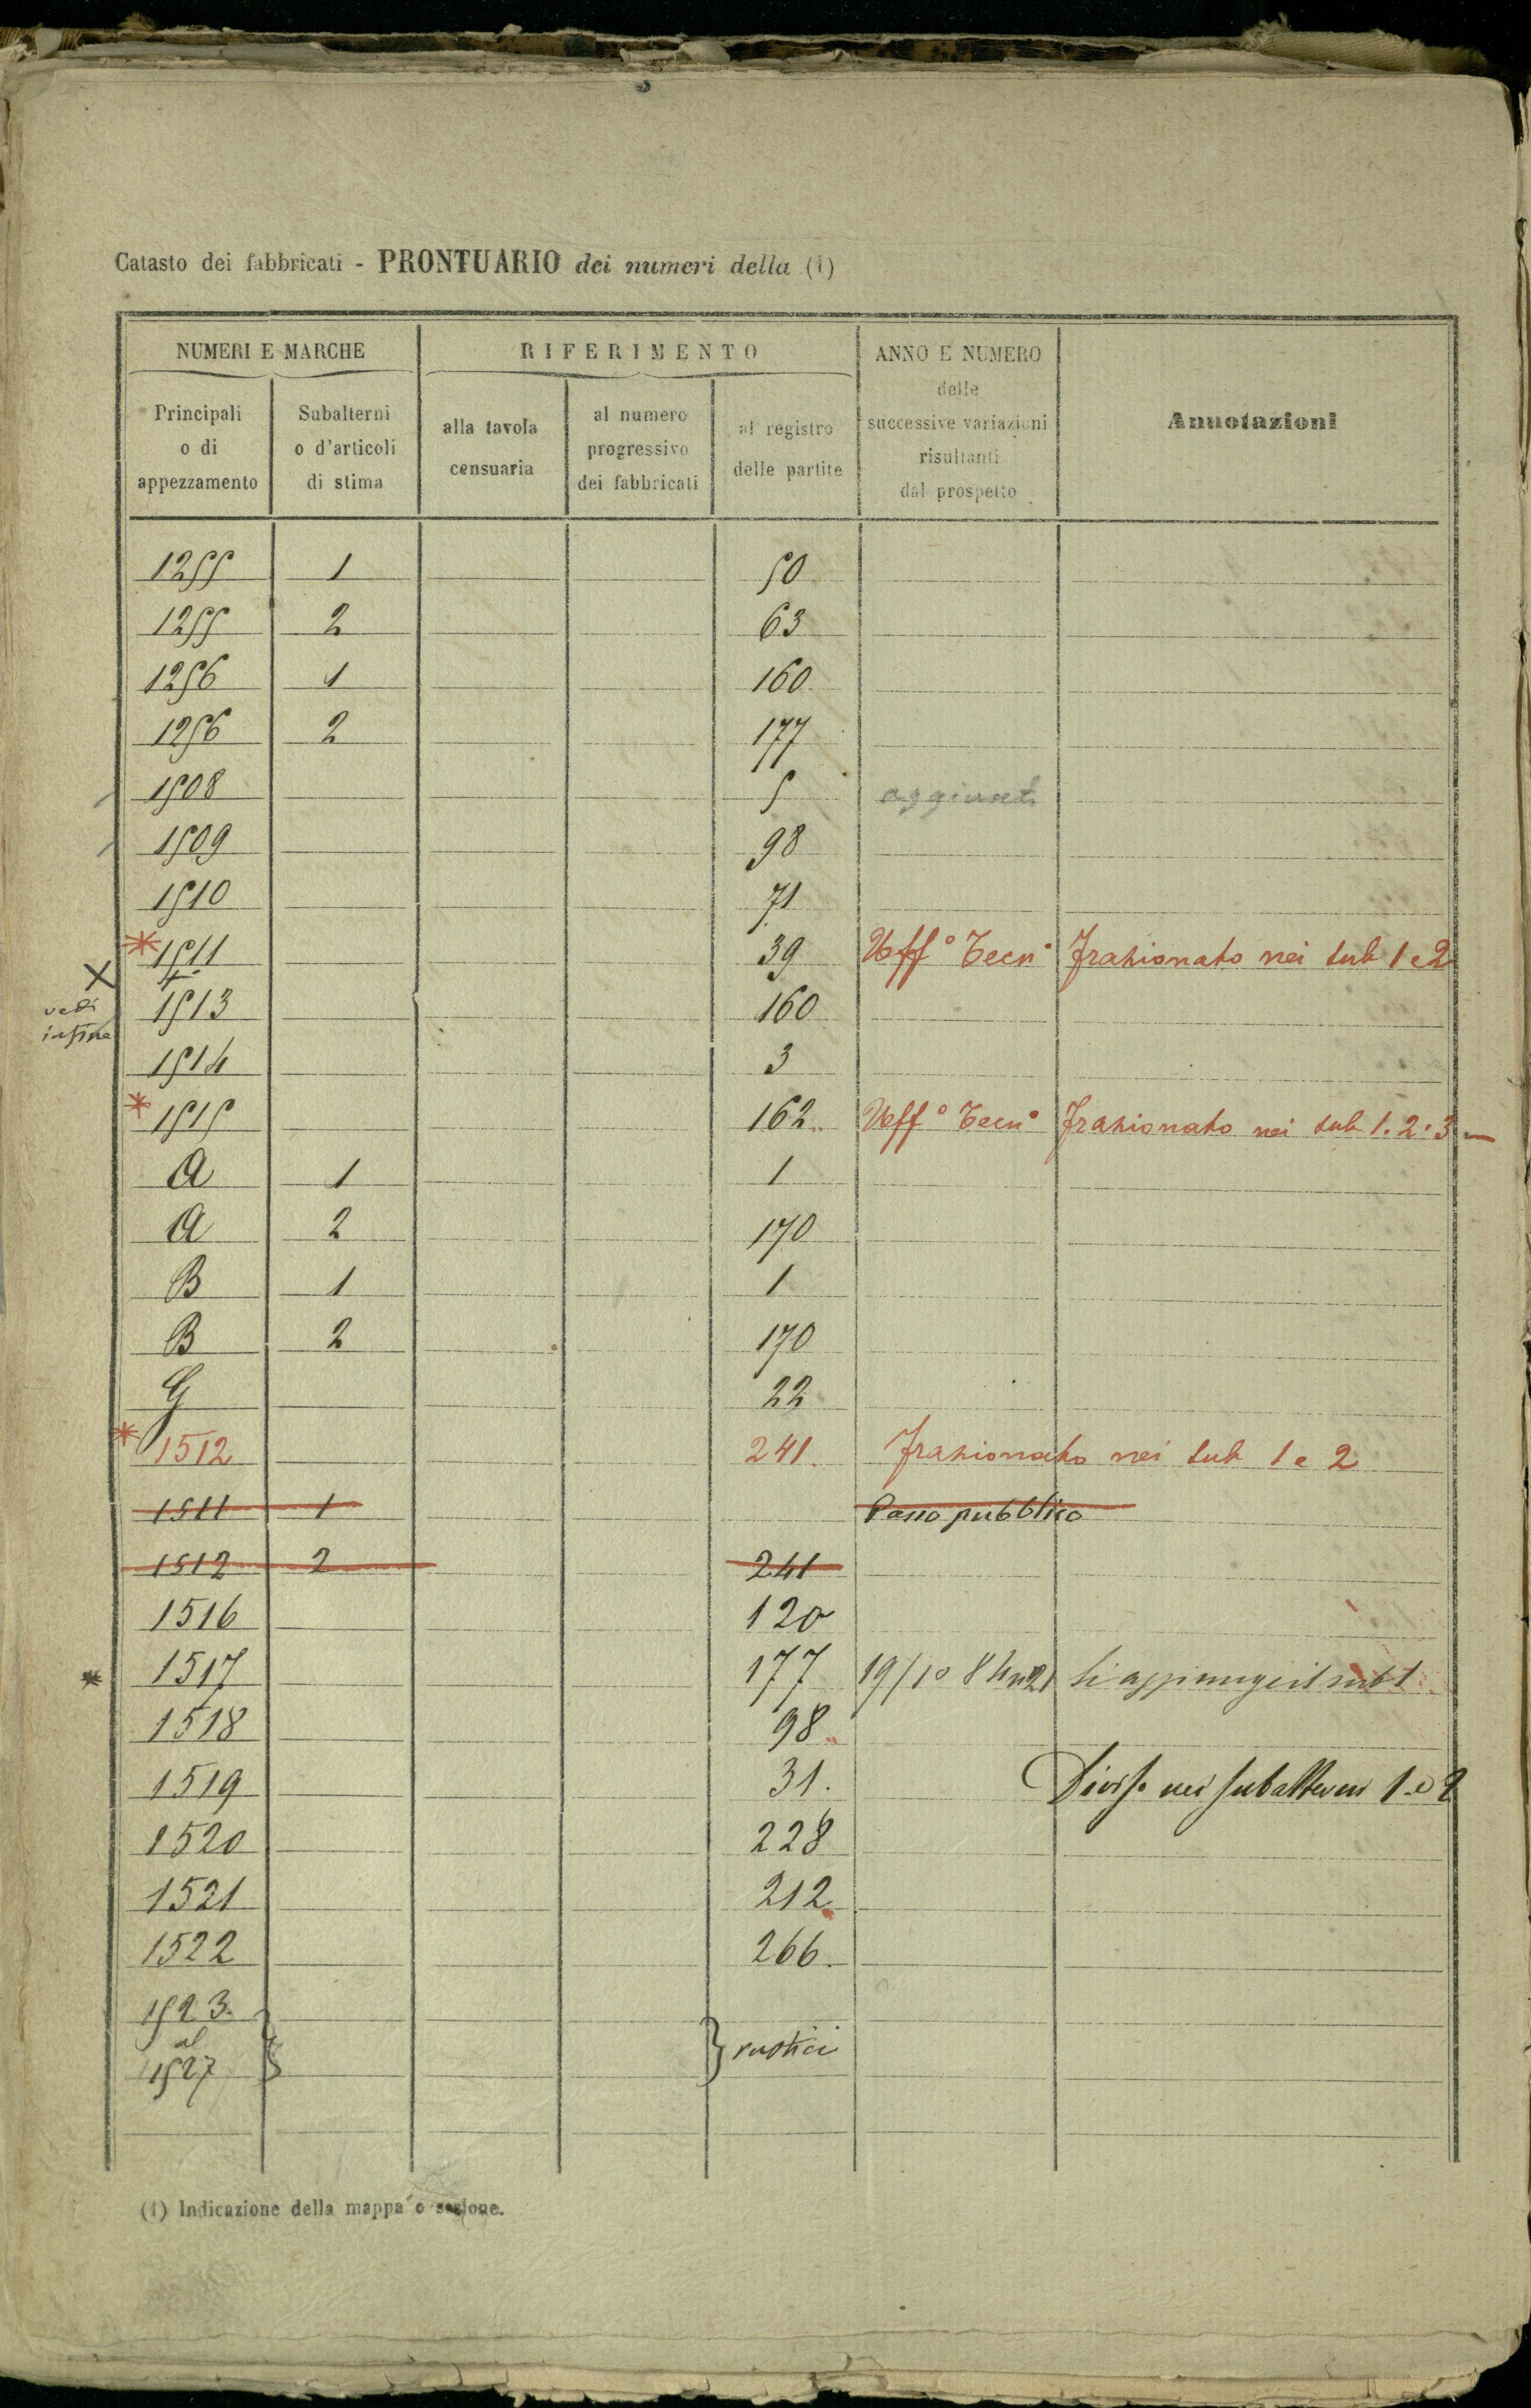 Catasto dei fabbricati - PRONTUARIO dei numeri della (1)
NUMERI E MARCHE
RIFERIMENTO
ANNO E NUMERO
delle
successive variazioni
risultanti
dal prospetto
Annotazioni
Principali
o di
appezzamento
Subalterni
o d'articoli
di stima
alla tavola
censuaria
al numero
progressivo
dei fabbricati
al registro
delle partite
1255 1 50
1255 2 63
1256 1 160
1256 2 177
1508 5 aggiunt.
1509 98
1510 71
* 1511 39 Uff° Tecn° Frazionato nei sub 1 e 2
X vedi 1513 160
infine
1514 3
* 1515 162. Uff° Tecn° Frazionato nei sub 1. 2. 3
A 1 1
A 2 170
B 1 1
B 2 170
G 22
* 1512 241. Frazionato nei sub 1 e 2
1511 1 Passo pubblico
1512 2 241
1516 120
* 1517 177 19/10 84 n 21 Si aggiunge il sub 1
1518 98
1519 31. Diviso nei subalterni 1 e 2
1520 228
1521 212
1522 266
1523.
al } rustici
1527
(1) Indicazione della mappa o sezione.